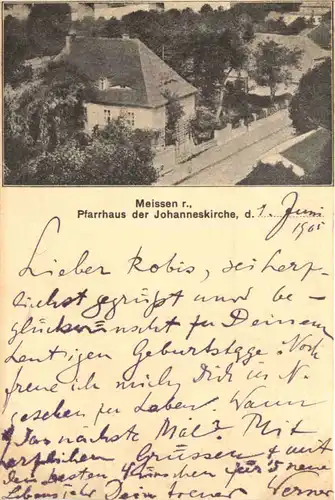 Meissen r.,
Pfarrhaus der Johanneskirche, d. 1. Juni
1905
Lieber Robis, sei herz-
lichst gegrüßt und be-
glückwünscht zu Deinem
heutigen Geburtstage. Noch
freue ich mich, Dich in N.
gesehen zu haben. Wann
das nächste Mal? Mit
herzlichen Grüssen & mit
den besten Wünschen für's neue
Lebensjahr Dein treuer